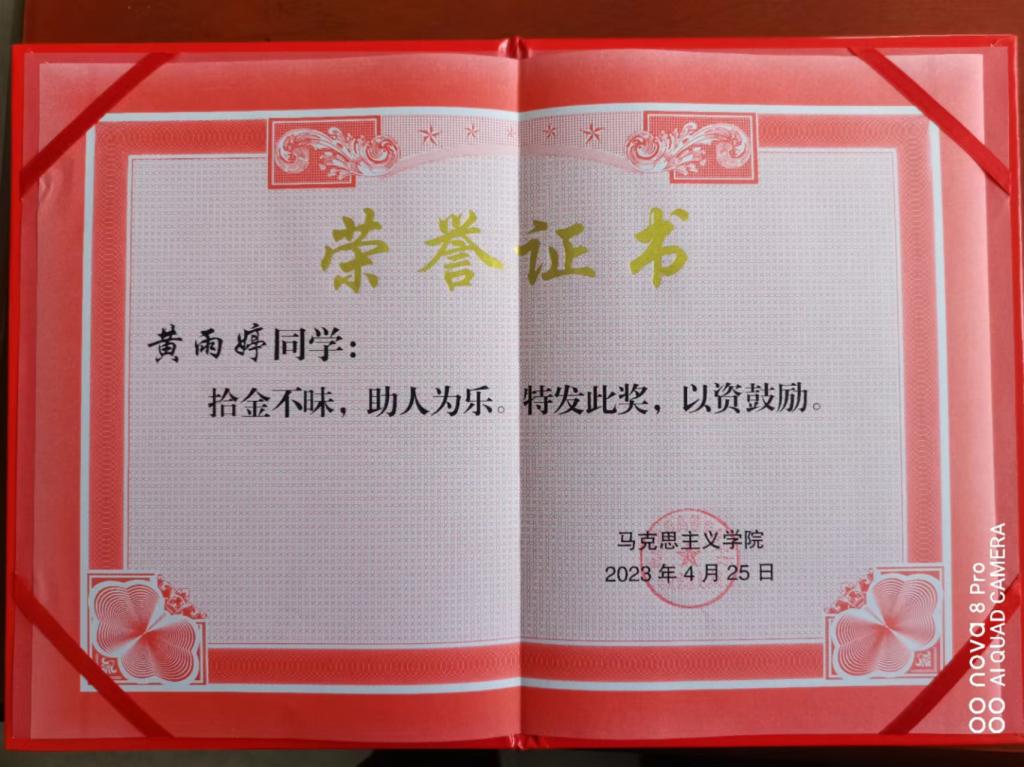 荣誉证书
黄雨婷同学：
拾金不昧，助人为乐。特发此奖，以资鼓励。
马克思主义学院
2023年4月25日
nova 8 Pro
AI QUAD CAMERA